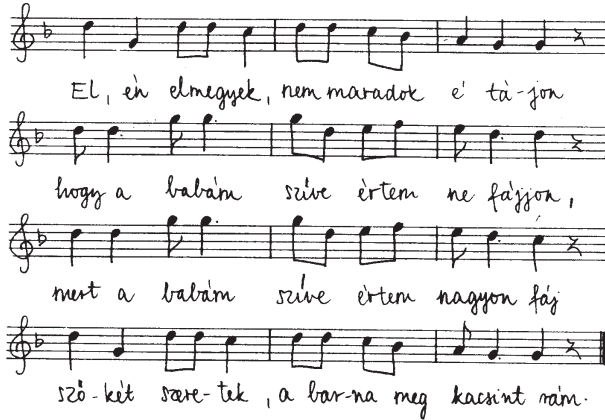 El, én elmegyek, nem maradok e' tá-jon
hogy a babám szíve értem ne fájjon,
mert a babám szíve értem nagyon fáj
sző-két szere-tek, a bar-na meg kacsint rám.